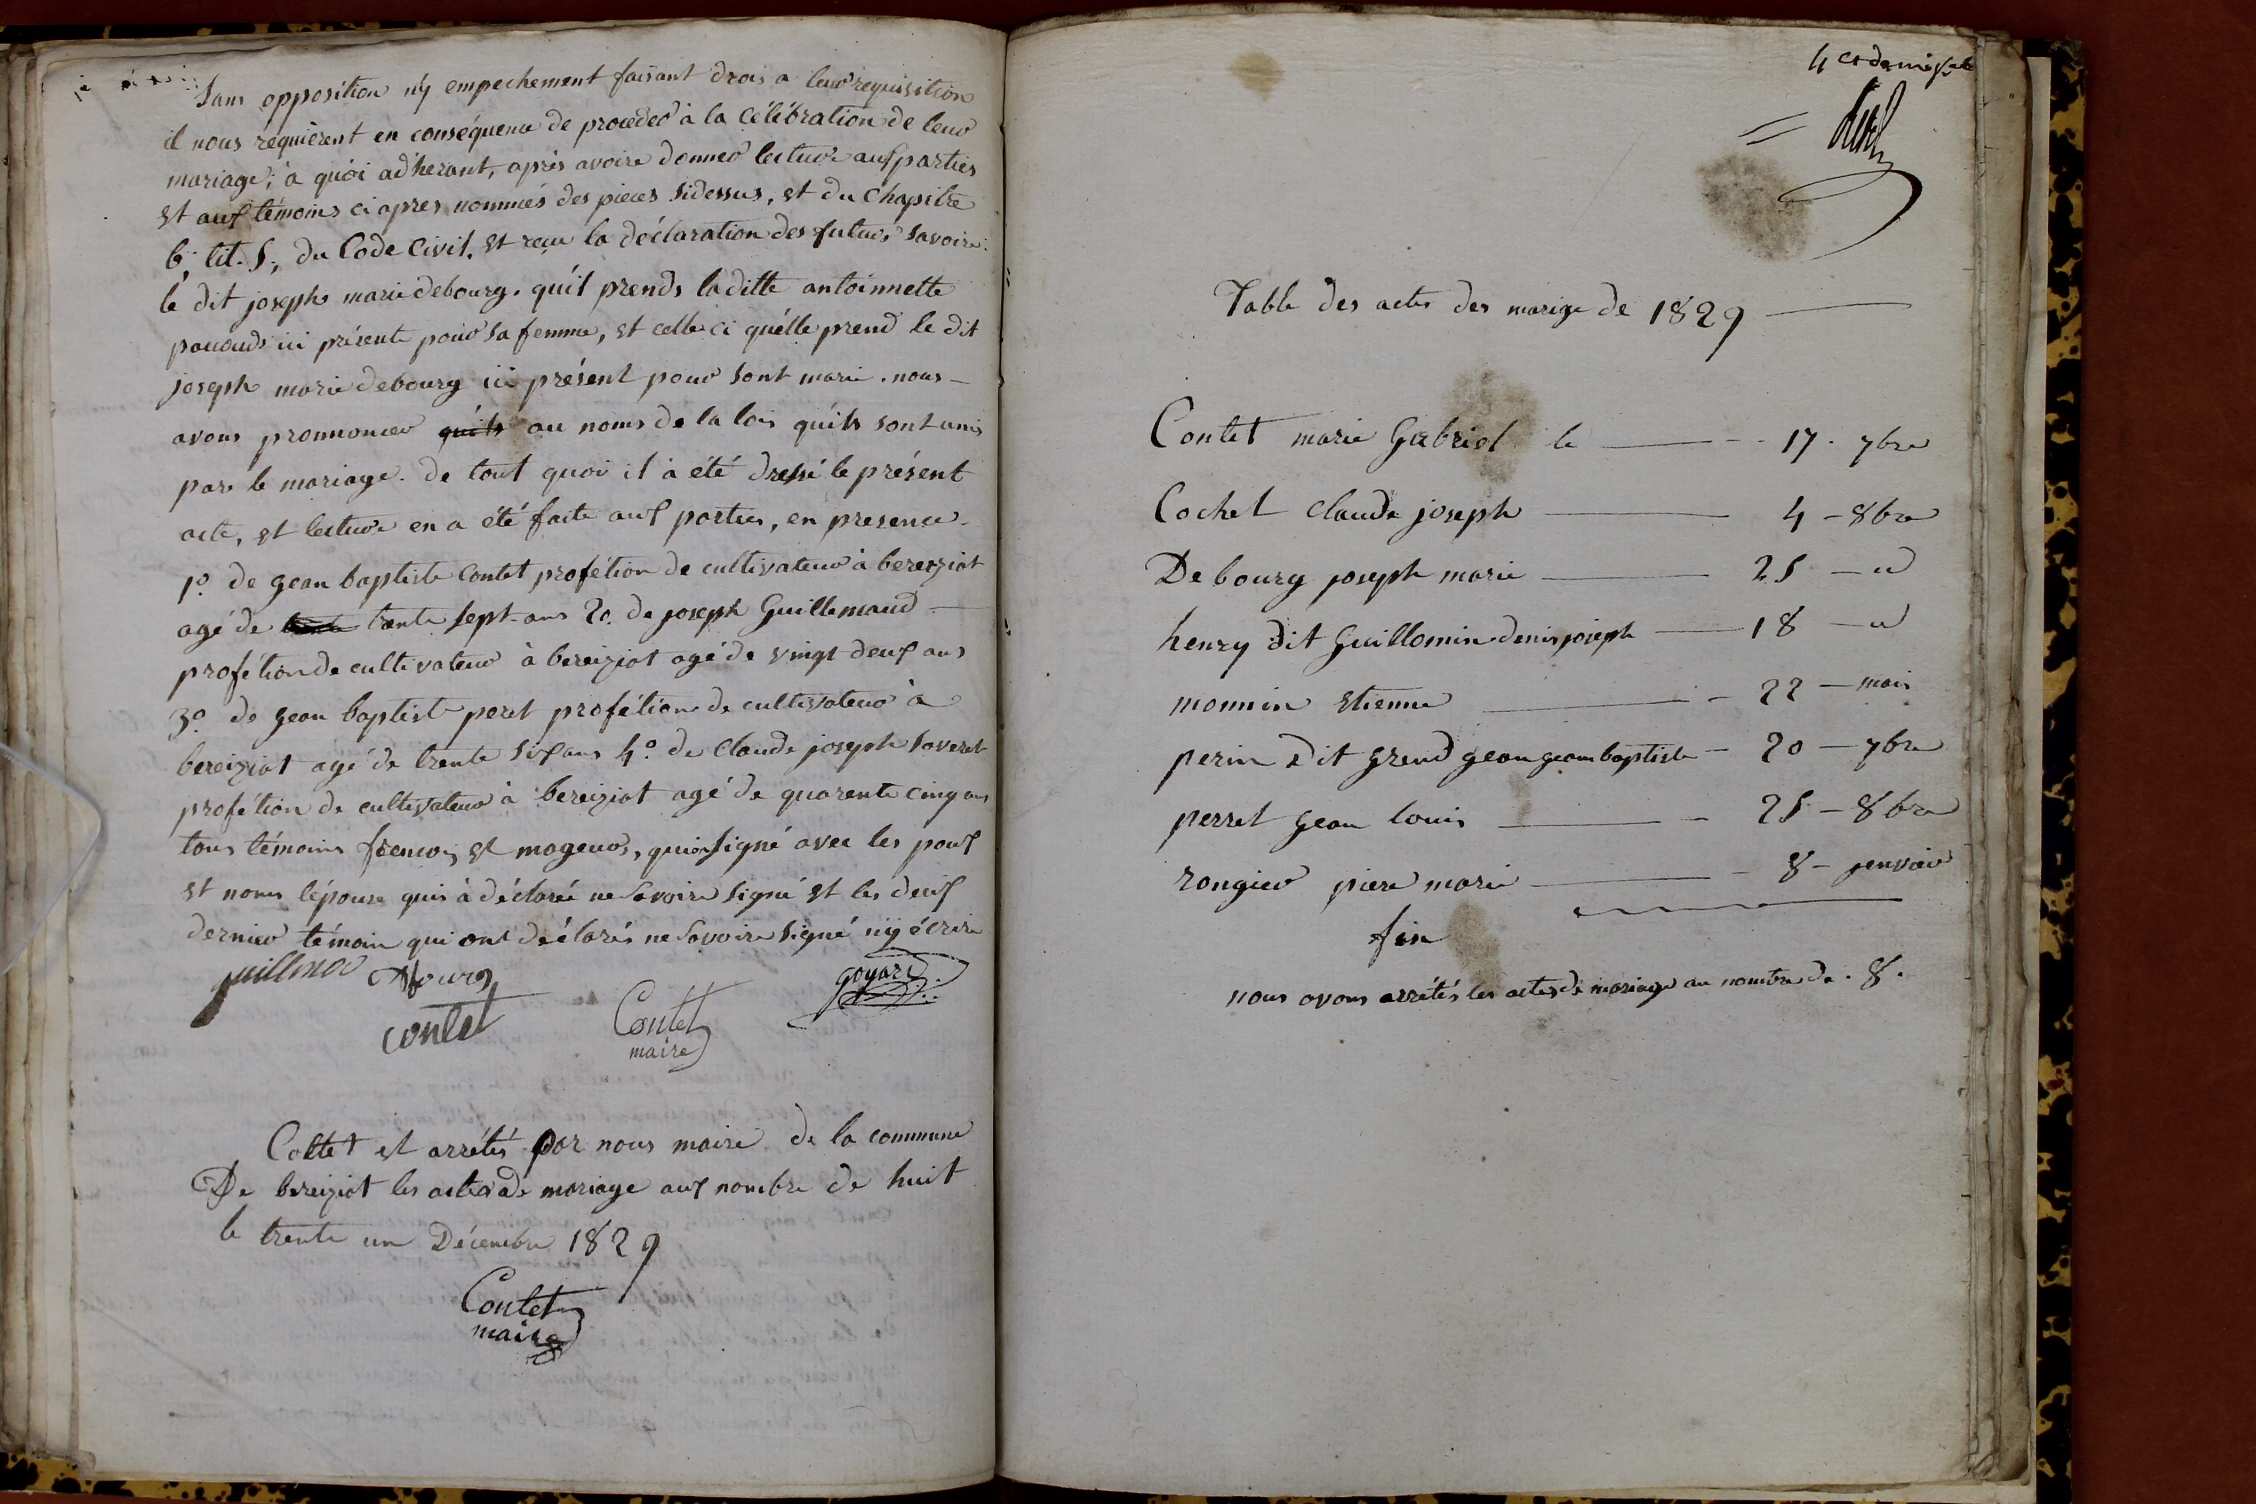 Sans opposition n'y empechement faisant drois a leur requisition
il nous requièrent en conséquence de proceder à la célébration de leur
mariage; à quoi adherant, après avoire donner lecture aux parties
et aux témoins ci apres nommés des pieces sidessus, et du chapitre
6, tit. 5, du Code Civil, et reçu la déclaration des futurs savoire:
le dit joseph marie debourg. qu'il prends laditte antoinnette
ici présente pour sa femme, et celle ci qu'élle prend le dit
joseph marie debourg ici présent pour sont marie. nous
avons prononcer qu'ils au noms de la lois qu'ils sont unis
par le mariage. de tout quoi il à été dressé le présent
acte, et lecture en a été faite aux parties, en presence
1º. de gean baptiste Contet profétion de cultivateur à bereiziat
agé de trente sept ans 2o. de joseph Guillemaud
profétion de cultivateur à bereiziat agé de vingt deux ans
3º. de gean baptiste peret profétion de cultivateur à
bereiziat agé de trente six ans 4º. de Claude joseph saveret
profétion de cultivateur à bereiziat agé de quarente cinq ans
tous témoins frencois et mageurs, qui on signé avec les
et nous l'épouse quis à déclaré ne savoire signé et les deux
dernier témoin qui ont déclarés ne savoire signé n'y écrire
contet
Contet
maire
goyard
et arrétés par nous maire de la commune
De bereiziat les actes de mariage aux nombre de huit
le trente un Décembre 1829
Contet
maire
4 et
Table des actes des marige de 1829
Contet marie Gabriel le 17. 7bre
Cochet Claude joseph 4 - 8bre
Debourg joseph marie 25 - id
henry dit Guillomin denis joseph 18 - id
monnin etienne 22 - mais
perin dit grend gean gean baptiste - 20 - 7bre
perret gean louis 25 - 8bre
rongier piere marie 8 - jenvier
fin
nous avons arrétés les actes de mariage au nombre de . 8 .